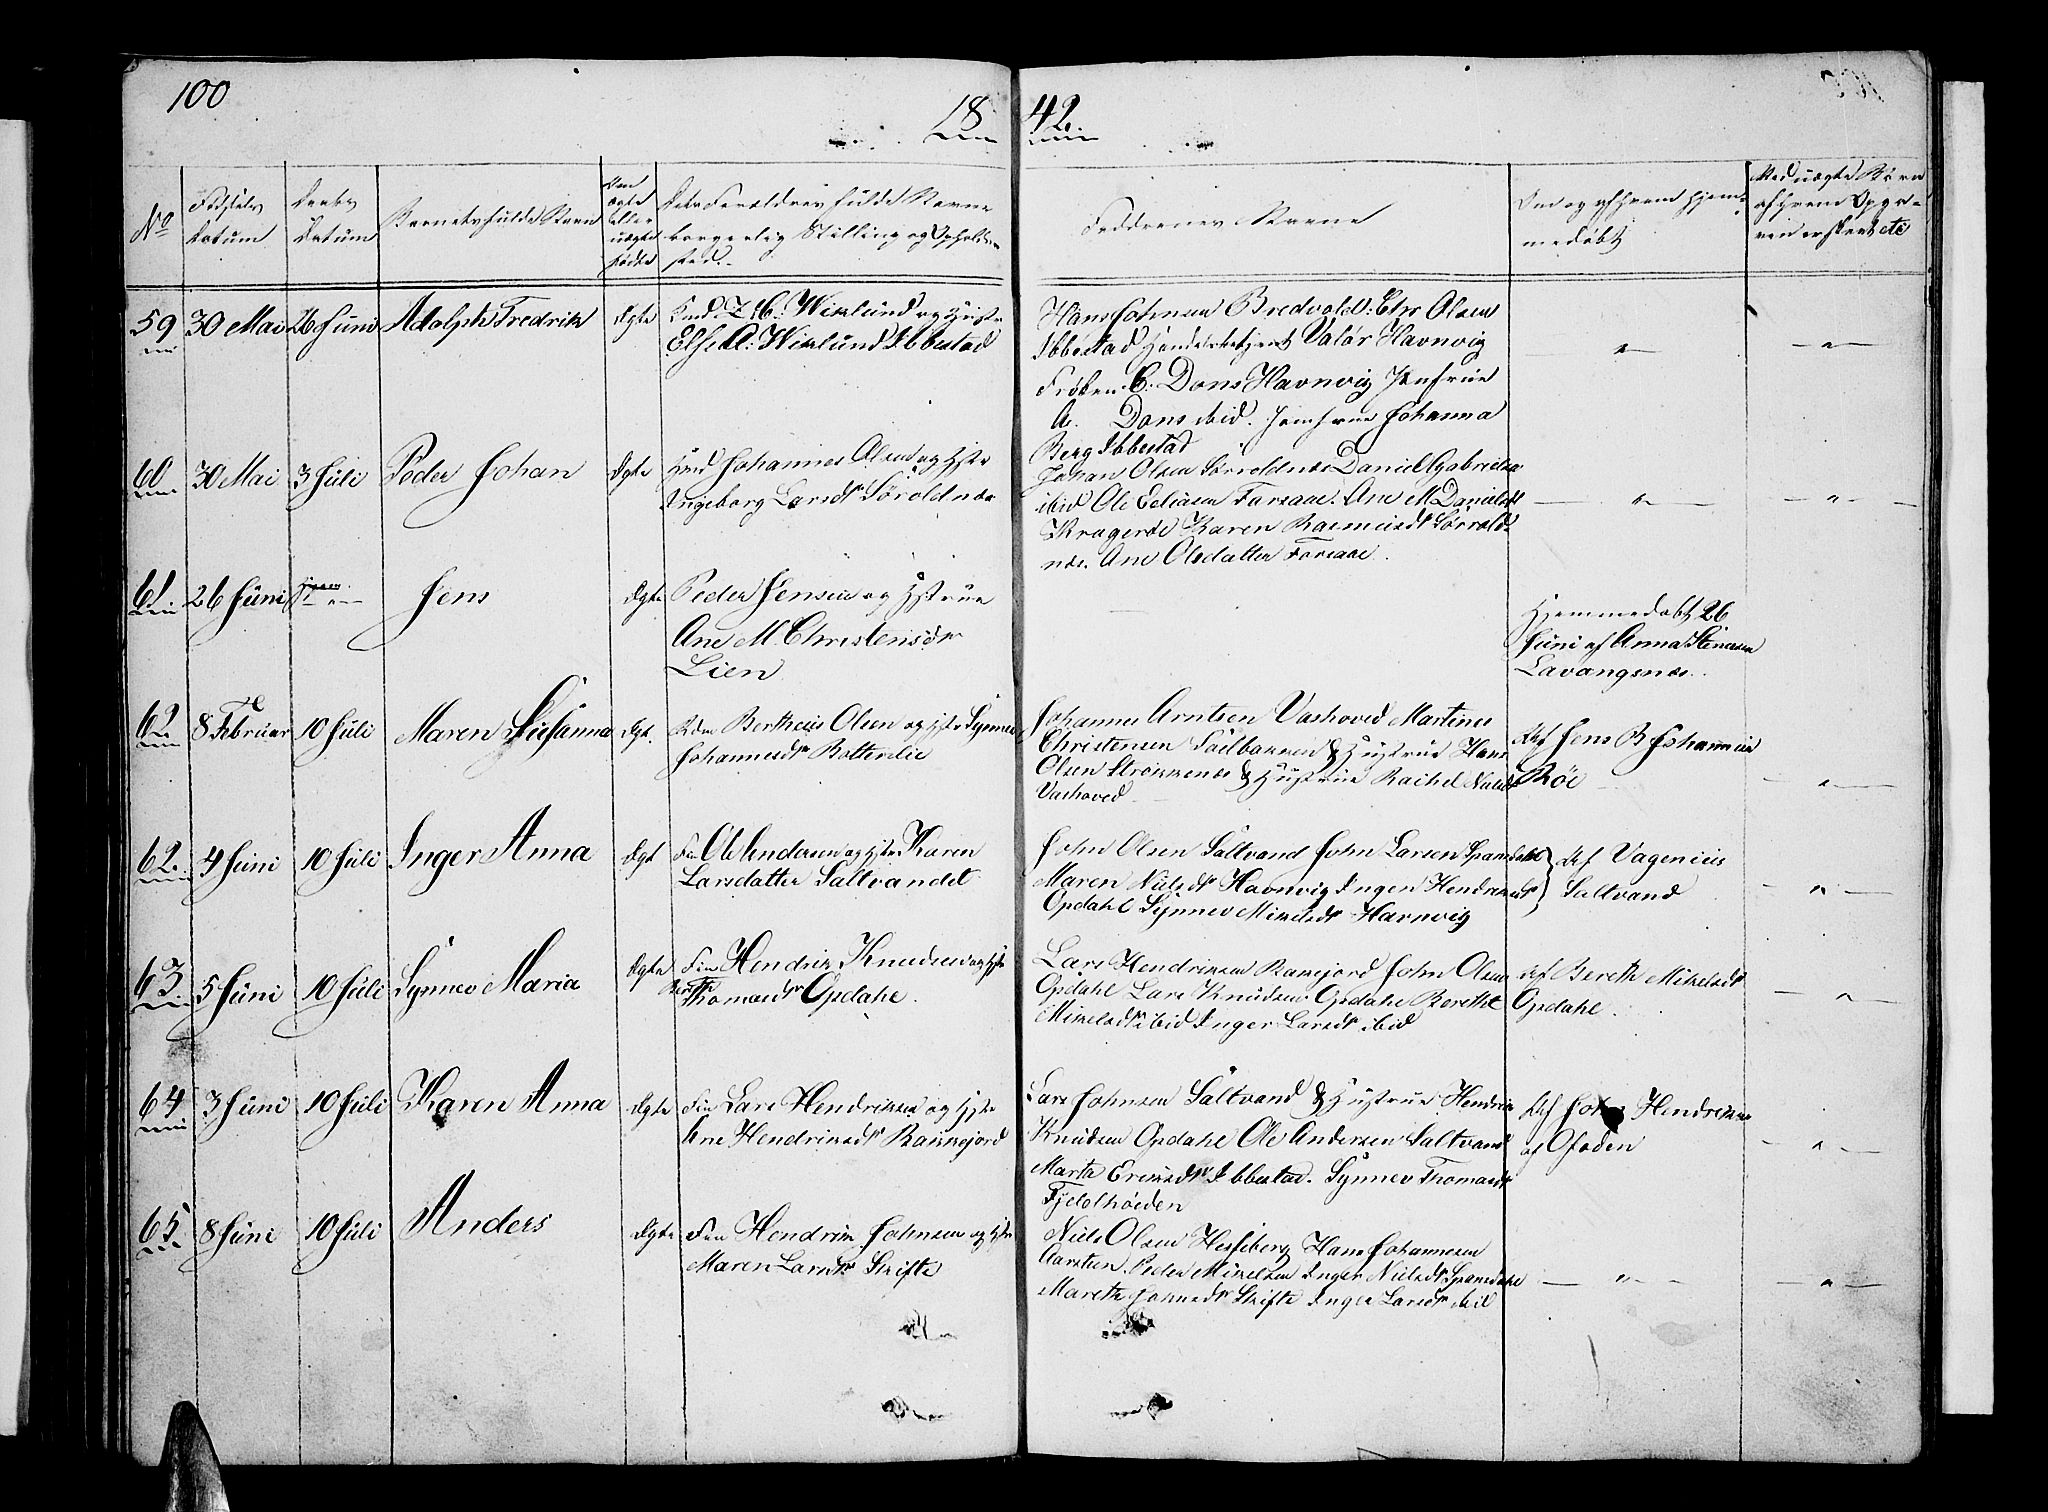 100
18 42
No
Fødsels Datum
Daabs Datum
Barnets fulde Navn
Om ægte eller uægte fødte
Dets Forældres fulde Navne borgerlig Stilling og Opholds sted.
Faddernes Navne
Om og af hvem hjemmedøbt
Med uægte Børn af hvem Opgaven er skeet etc
59 30 Mai 26 Juni Adolph Fredrik Ægte
Wiklund og Hustr
Else A: Wiklund Ibbestad
Hans Johnsen Bredvold: Ehr Olsen
Ibbestad Handelsbetjent Valør Havnvig
Frøken C. Dons Havnvig Jomfrue
A. Dons ibid. Jomfrue Johanna
Berg Ibbestad
60 30 Mai 3 Juli Peder Johan Ægte
Johannes Olsen og Hstr
Ingeborg Larsdr Søroldnæs
Johan Olsen Sørroldnæs Daniel Gabrielsen
ibid Ole Eeliasen Forsaae. Ane M Danielsdr
Kragerøe Karen Rasmusdr Sørrolds
næs. Ane Olsdatter Forsaae.
61 26 Juni Jens Ægte
Peder Jensen og Hstrue
Ane M. Christensdr
Lien
Hjemmedøbt 26
Juni af Anna
Lavangsnæs.
62 8 Februar 10 Juli Maren Susanna Ægt.
Bertheus Olsen og Hstr Synnev
Johannesdr Rottenlie
Johannes Arntsen Vashoved Martinus
Christensen & Hustrue Hans
Olsen Strømnæs & Hustrue Rachel Nielsdr
Vashoved
Def Jens B Johannesen
Røe
62. 4 Juni 10 Juli Inger Anna Ægt
Fin Ole Andersen og Hstr Karen
Larsdatter Saltvandet
John Olsen Saltvand John Larsen Spansdahl
Maren Nielsdr Havnvig Inger Hendriksdr
Opdahl Synnev Mikelsdr Havnvig
def Vagenius
Saltvand
63 5 Juni 10 Juli Synnev Maria Ægte
Fin Hendrik Knudsen og Hstr
Berethe
Thomasdr Opdahl.
Lars Hendriksen John Olsen
Opdahl Lars Knudsen Opdahl Berethe
Mikelsdr ibid Inger Larsdr ibid
def Bereth Mikelsdr
Opdahl.
64. 3 Juni 10 Juli Karen Anna Ægte
Fin Lars Hendriksen og Hstr
Ane Hendriksdr
Lars Johnsen Saltvand & Hustrue Hendrik
Knudsen Opdahl Ole Andersen Saltvand
Marta Eriksdr Ibbestad. Synnev Thomasdr
Fjeldhøiden
Def Hendriksen
af Ofoden
65. 8 Juni 10 Juli Anders Ægte
Fin Hendrik Johnsen og Hstr
Maren Larsdr Skifte
Niels Olsen Hessberg Hans Johannesen
Aarsteen Peder Mikelsen Inger Nielsdr Spansdahl
Marethe Johnsdr Skifte Inger Larsdr ibid